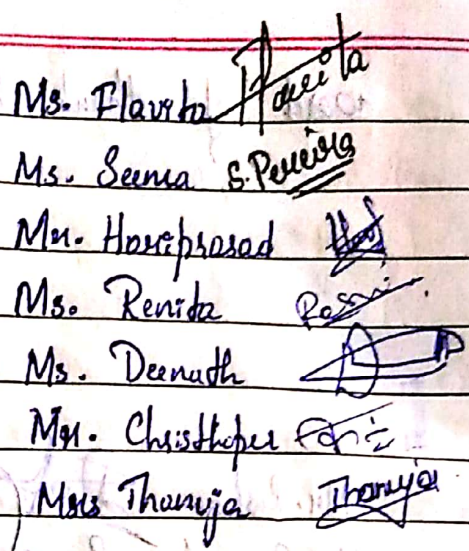 Ms. Flavita Flavita
Ms. Seema S. Pereira
Mr. Hariprasad
Ms. Renita
Ms. Deenath
Mr. Christhoper
Mrs Thanuja Thanuja